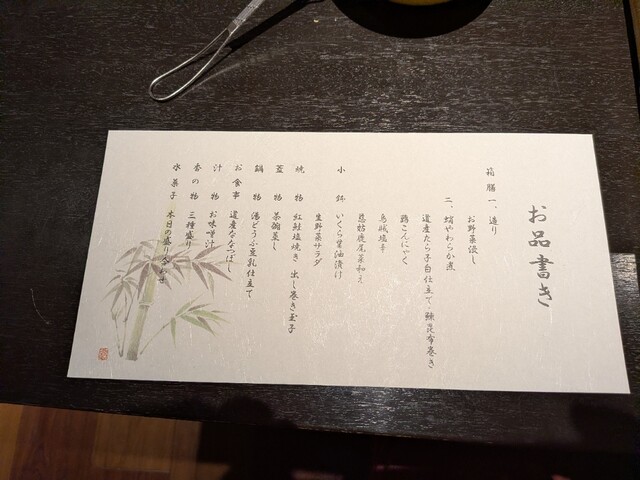 お品書き
箱膳 一、造り
お野菜浸し
二、蛸やわらか煮
道産たら子白仕立て・鰊昆布巻き
鶏こんにゃく
烏賊塩辛
慈姑鹿尾菜和え
小鉢 いくら醤油漬け
生野菜サラダ
焼物 紅鮭塩焼き 出し巻き玉子
蓋物 茶碗蒸し
鍋物 湯どうふ豆乳仕立て
お食事 道産ななつぼし
汁物 お味噌汁
香の物 三種盛り
水菓子 本日の盛り合わせ